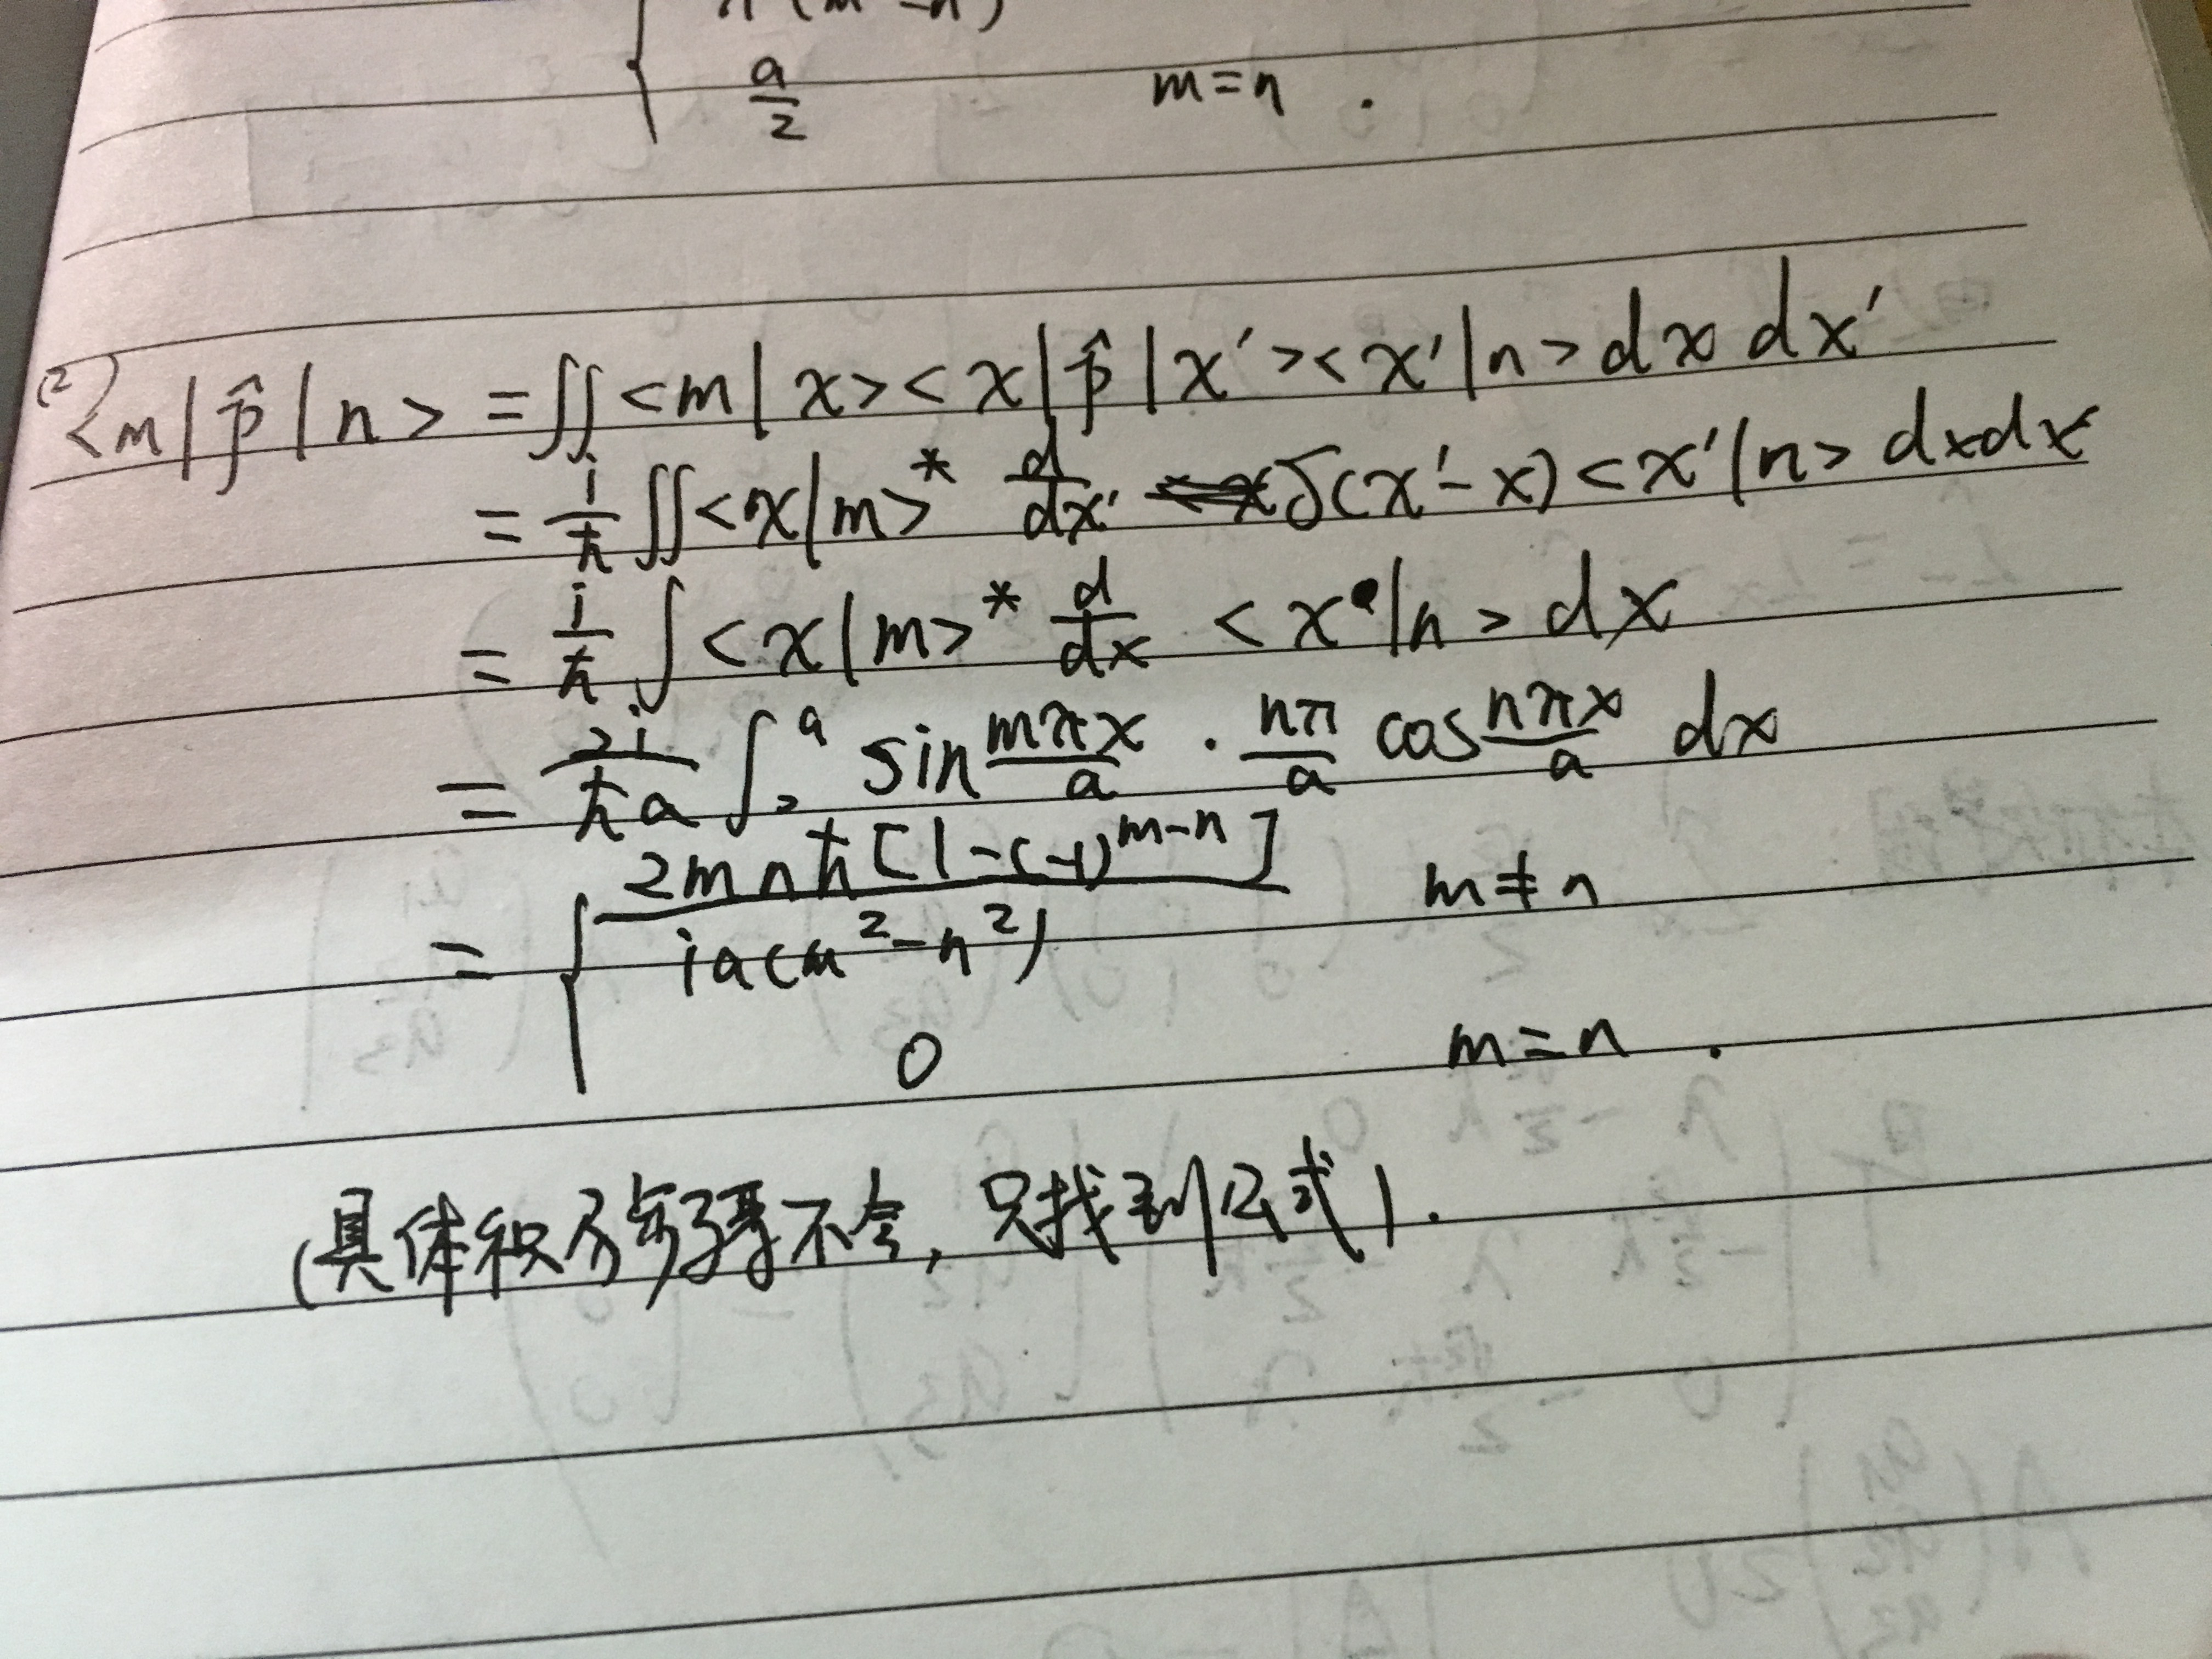 π(m -n)
a/2 m=n .
(2) <m|p̂|n> = ∬<m|x><x|p̂|x'><x'|n>dx dx'
= i/ħ ∬<x|m>* d/dx' δ(x'-x)<x'|n> dxdx'
= i/ħ ∫<x|m>* d/dx <x|n>dx
= 2i/ħa ∫₀ᵃ sin mπx/a · nπ/a cos nπx/a dx
= { 2mnħ[1-(-1)^{m-n}] / ia(m²-n²) m≠n
0 m=n .
(具体积分步骤不会,只找到公式).